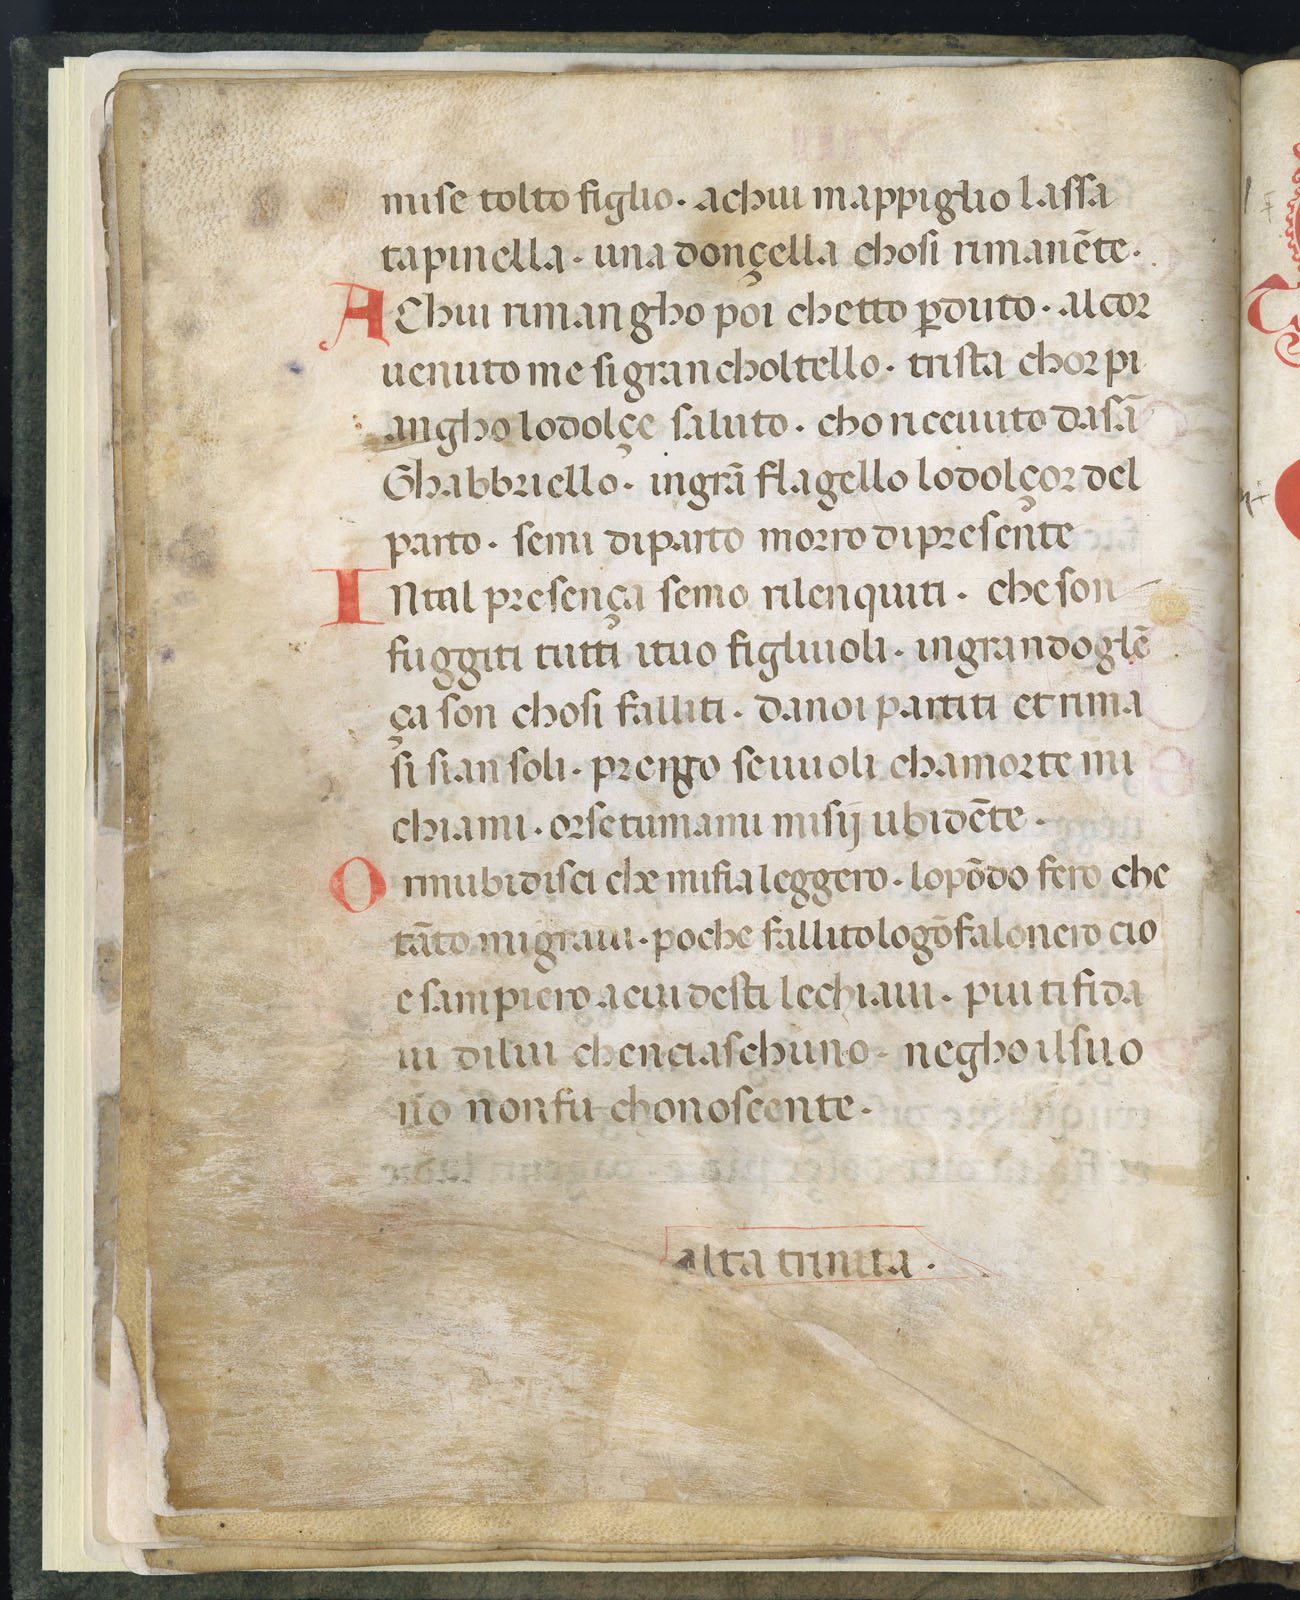 mise tolto figlio · a chui mappiglio lassa
tapinella · una donçella chosi rimanēte ·
A Chui rimangho poi chetto ꝑduto · al cor
uenuto me si gran choltello · trista chor pi
angho lo dolçe saluto · cho riceuuto da sā
Ghabbriello · in grā flagello lo dolçor del
parto · semi diparto morro di presente
I Ntal presença semo rilenquiti · che son
fuggiti tutti i tuo figluioli · in gran doglē
ça son chosi falliti · da noi partiti et rima
si sian soli · prego se uuoli cha morte mi
chiami · or se tu mami misij ubidēte ·
O rmubidisci che mi fia leggero · lo pōdo fero che
tāto mi graui · po che fallito lo gōfalonero cio
e sam piero a cui desti le chiaui · piu ti fida
ui di lui che nciaschuno · negho il suo
no non fu chonoscente ·
alta trinita ·